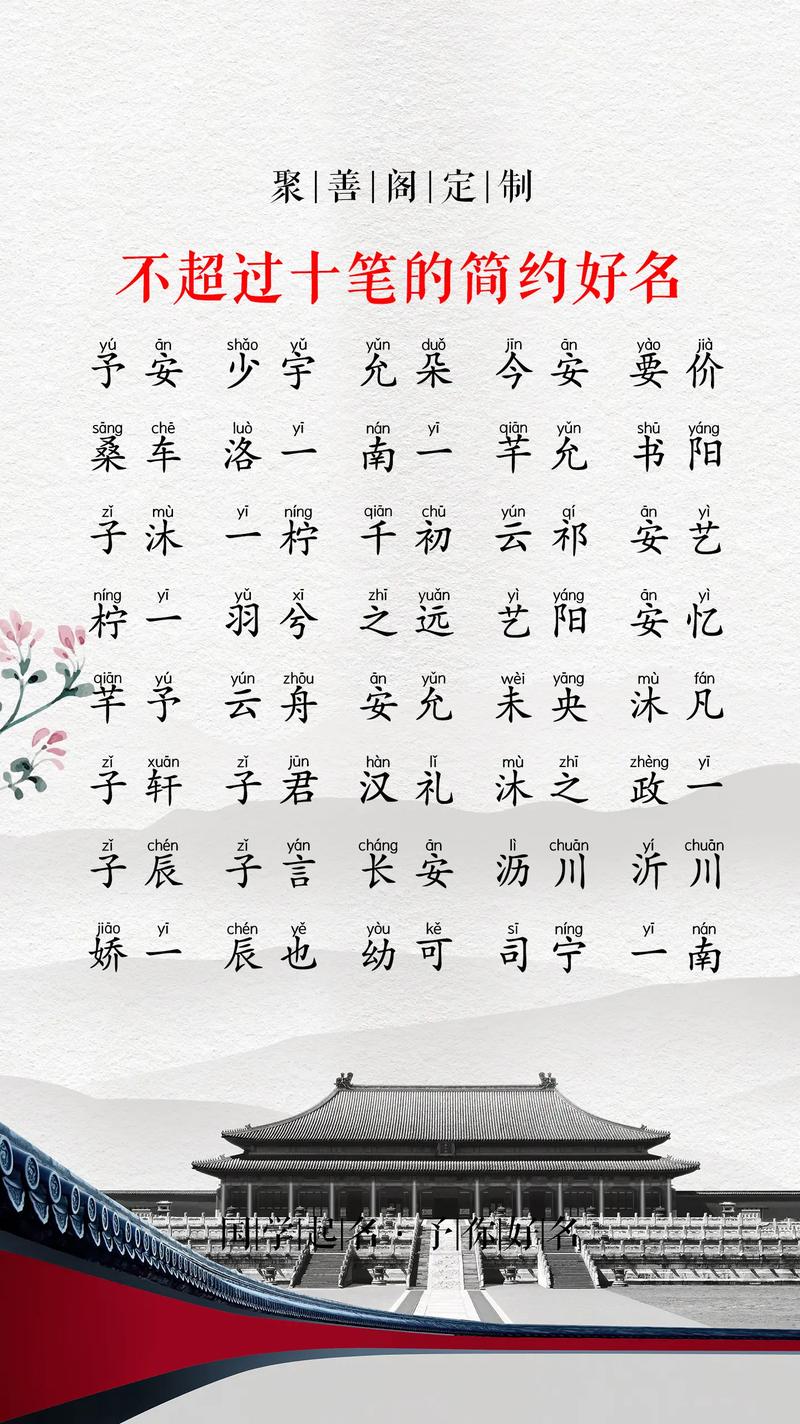 聚|善|阁|定|制
不超过十笔的简约好名
yú ān shǎo yǔ yǔn duǒ jīn ān yào jià
予安 少宇 允朵 今安 要价
sāng chē luò yī nán yī qiān yǔn shū yáng
桑车 洛一 南一 芊允 书阳
zǐ mù yī níng qiān chū yún qí ān yì
子沐 一柠 千初 云祁 安艺
níng yī yǔ xī zhī yuǎn yì yáng ān yì
柠一 羽兮 之远 艺阳 安忆
qiān yú yún zhōu ān yǔn wèi yāng mù fán
芊予 云舟 安允 未央 沐凡
zǐ xuān zǐ jūn hàn lǐ mù zhī zhèng yī
子轩 子君 汉礼 沐之 政一
zǐ chén zǐ yán cháng ān lì chuān yí chuān
子辰 子言 长安 沥川 沂川
jiāo yī chén yě yòu kě sī níng yī nán
娇一 辰也 幼可 司宁 一南
国|学|起|名·予|你|好|名